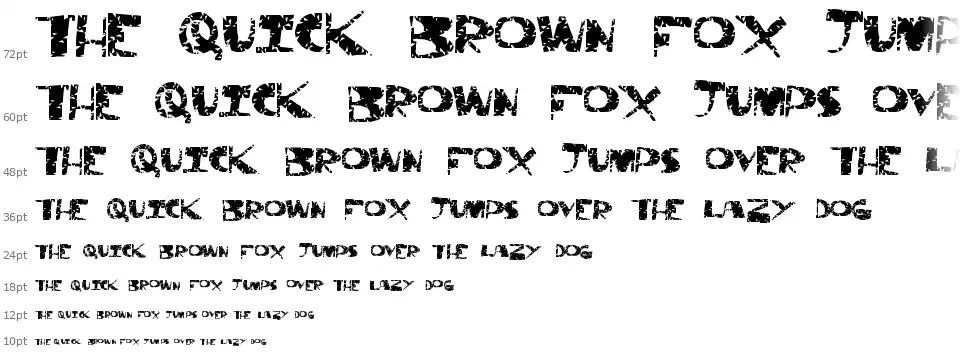 72pt THE QUICK BROWN FOX JUMP
60pt THE QUICK BROWN FOX JUMPS OVE
48pt THE QUICK BROWN FOX JUMPS OVER THE LA
36pt THE QUICK BROWN FOX JUMPS OVER THE LAZY DOG
24pt THE QUICK BROWN FOX JUMPS OVER THE LAZY DOG
18pt THE QUICK BROWN FOX JUMPS OVER THE LAZY DOG
12pt THE QUICK BROWN FOX JUMPS OVER THE LAZY DOG
10pt THE QUICK BROWN FOX JUMPS OVER THE LAZY DOG